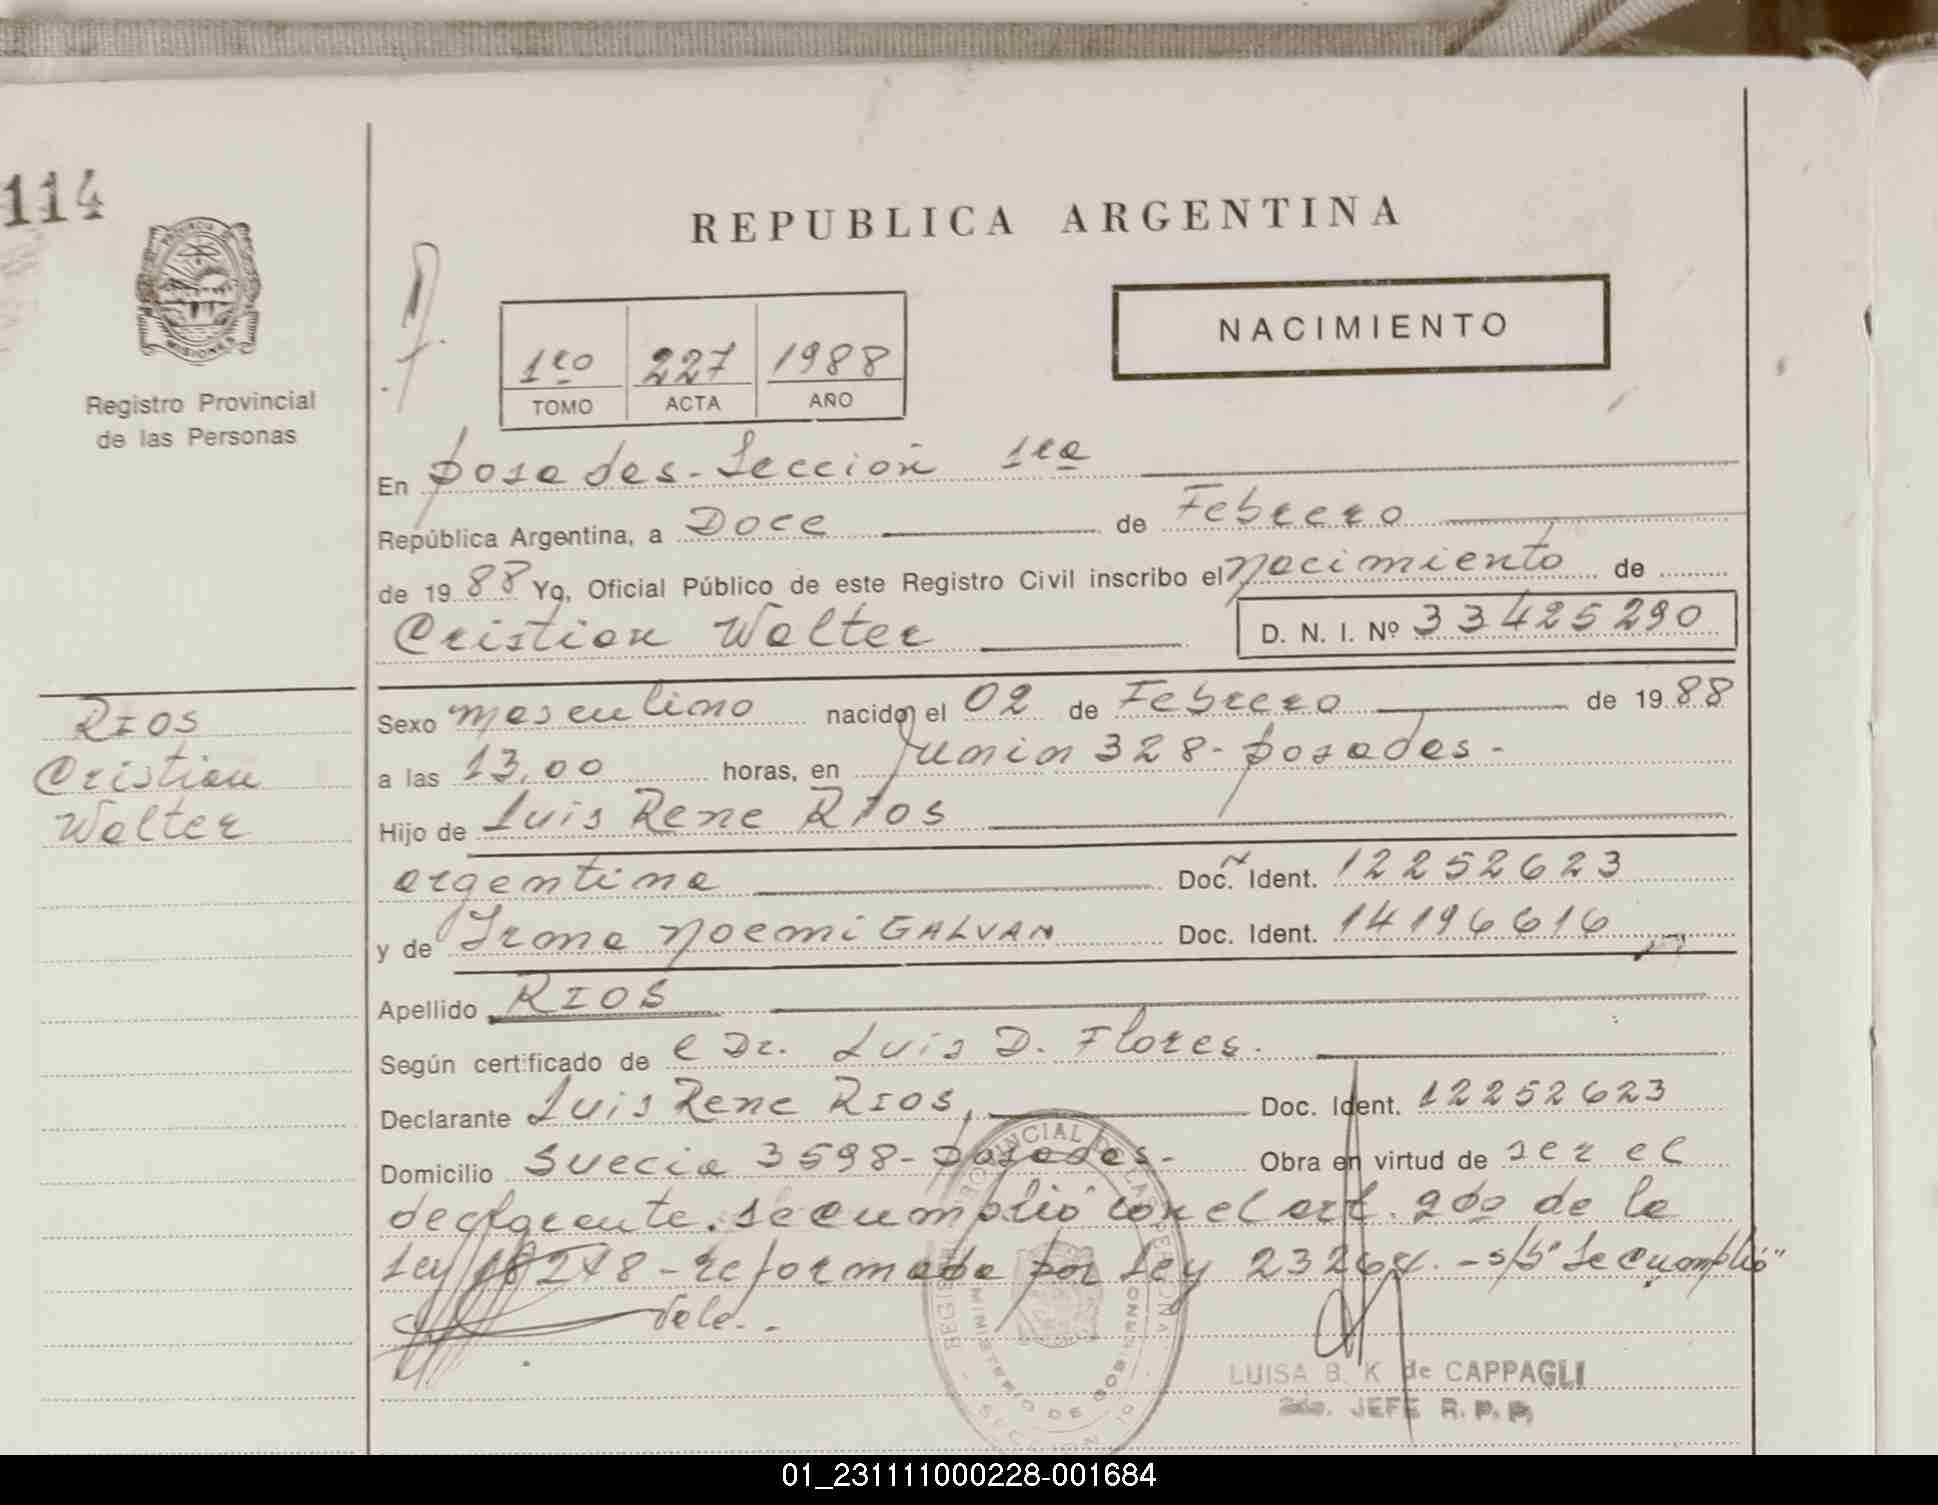 114
REPUBLICA ARGENTINA
PROVINCIA DE
MISIONES
Registro Provincial
de las Personas
1ro 227 1988
TOMO ACTA AÑO
NACIMIENTO
En Posadas - Sección 1ra
República Argentina, a Doce de Febrero
de 19 88 Yo, Oficial Público de este Registro Civil inscribo el nacimiento de
Cristian Walter D. N. I. Nº 33425290
RIOS
Cristian
Walter
Sexo masculino nacido el 02 de Febrero de 19 88
a las 13,00 horas, en Junin 328 - Posadas -
Hijo de Luis Rene RIOS
argentina Doc. Ident. 12252623
y de Irma Noemi GALVAN Doc. Ident. 14196616
Apellido RIOS
Según certificado de e Dr. Luis D. Flores.
Declarante Luis Rene RIOS, Doc. Ident. 12252623
Domicilio Suecia 3598 - Posadas - Obra en virtud de ser el
declarante. Se cumplió con el art. 2do de la
Ley 18248 - reformada por Ley 23264. - s/b "Se cumplió"
Vale. -
REGISTRO PROVINCIAL DE LAS PERSONAS
MINISTERIO DE GOBIERNO
SECCION
LUISA B. K de CAPPAGLI
2do. JEFE R. P. P.
01_231111000228-001684